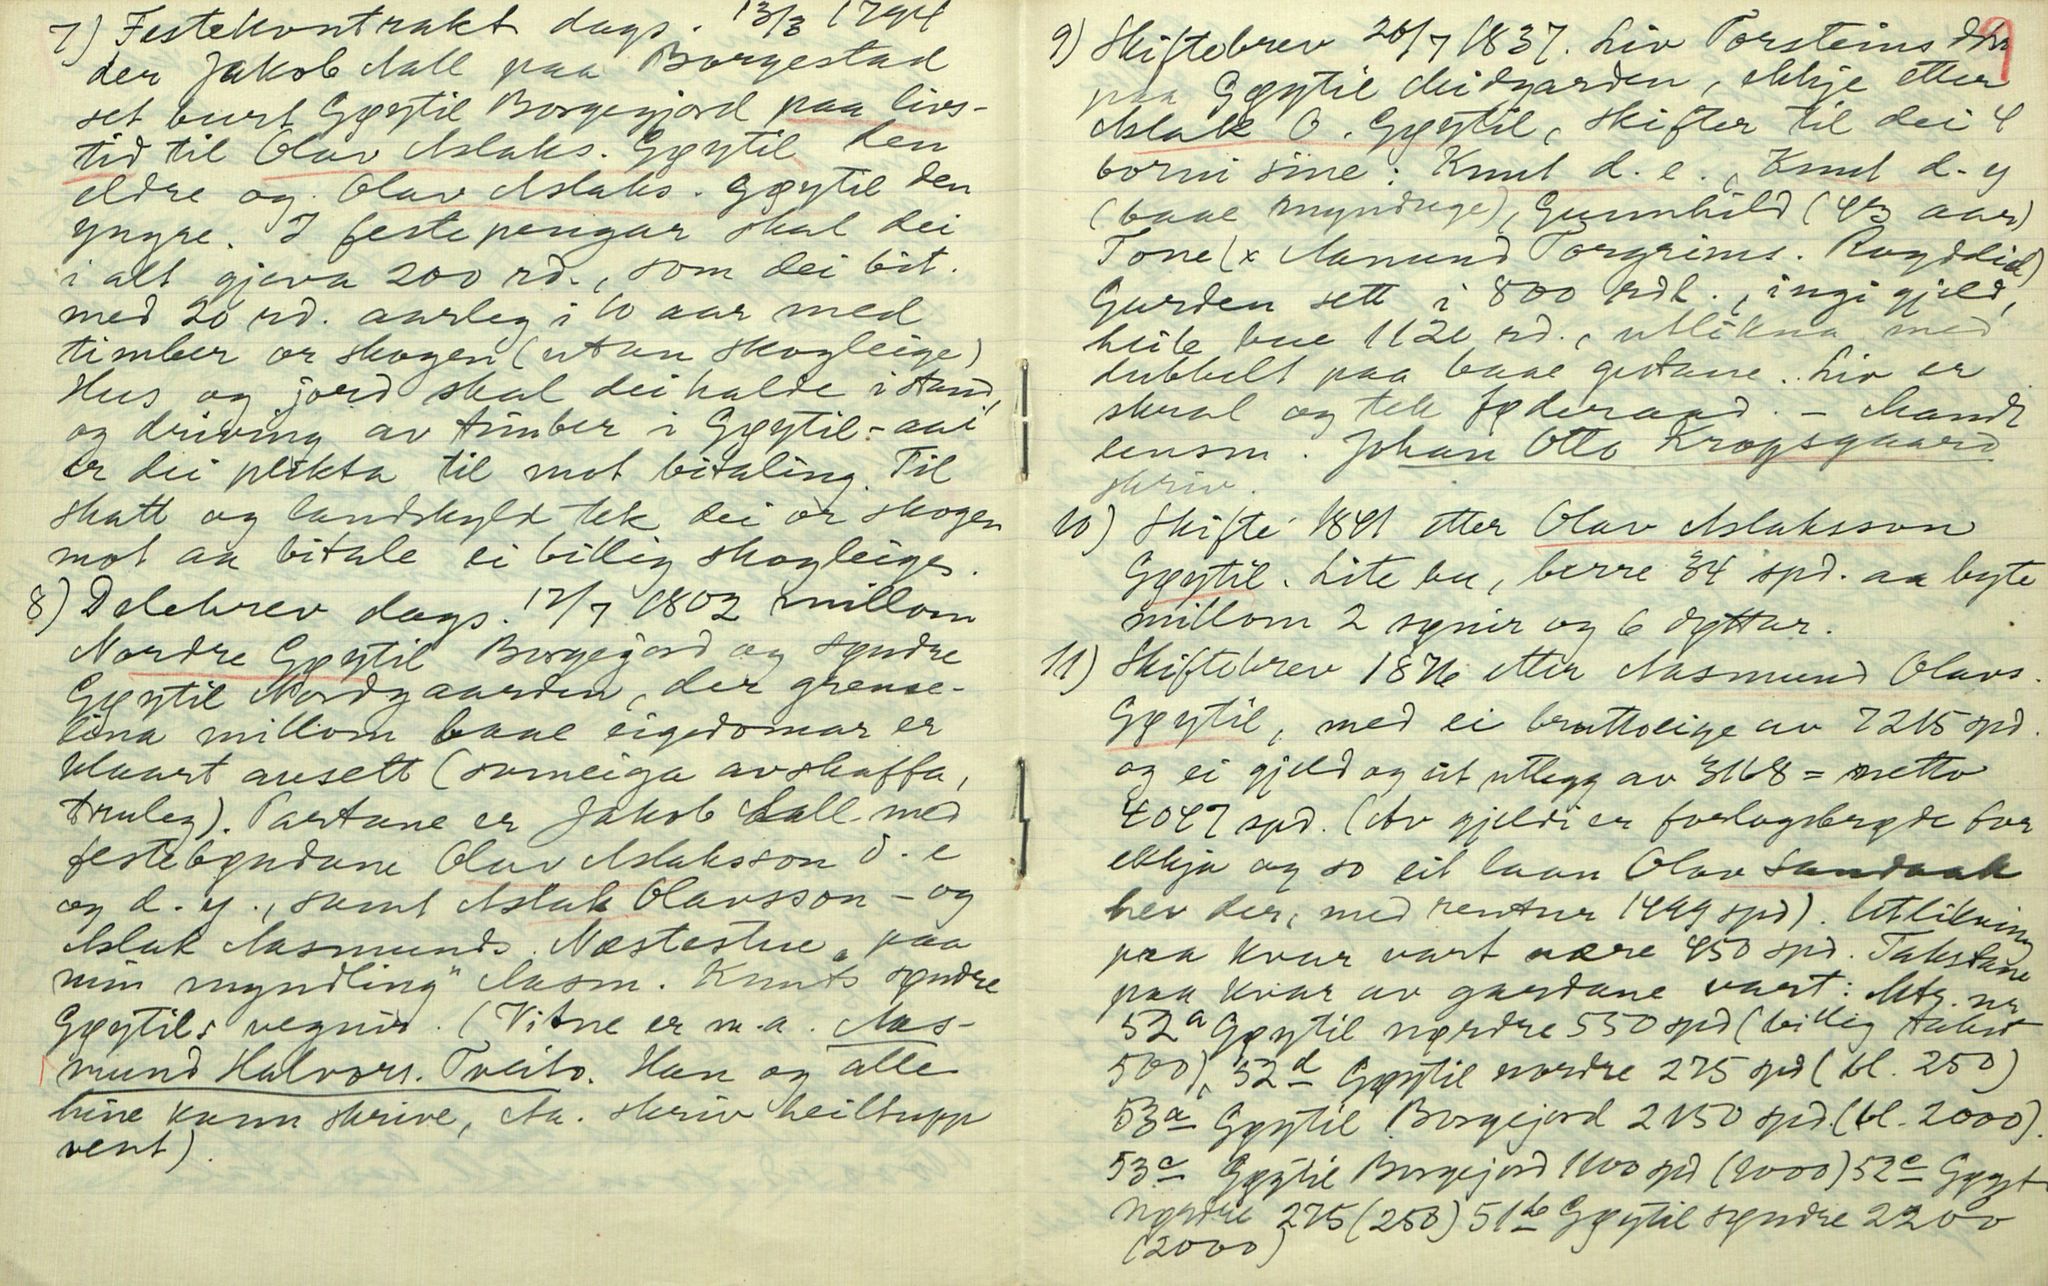 7) Festekontrakt dags. 13/3 1794
der Jakob Aall paa Borgestad
set burt Gøytil Borgegjord paa livs-
tid til Olav Aslaks. Gøytil den
eldre og Olav Aslaks. Gøytil den
yngre. I festepengar skal dei
i alt gjeva 200 rd., som dei bit.
med 20 rd. aarleg i 10 aar med
timber or skogen (utan skogleige)
Hus og jord skal dei halde i stand,
og driving av timber i Gøytil-aai
er dei plikta til mot bitaling. Til
skatt og landskyld tek dei or skogen
mot aa bitale ei billig skogleige.
8) Delebrev dags. 17/7 1802 millom
Nordre Gøytil Borgegjord og søndre
Gøytil Nordgaarden, der grense-
lina millom baae eigedomar er
klaart ansett (someiga avskaffa,
truleg). Partane er Jakob Aall med
festebøndane Olav Aslaksson d. e
og d. y., samt Aslak Olavsson - og
Aslak Aasmunds. Næstestue „paa
min myndling" Aasm. Knuts søndre
Gøytils vegnir. (Vitne er m.a. Aas-
mund Halvors. Tveito. Han og alle
hine kann skrive, Aa. skriv heiltupp
vent).
9
9) Skiftebrev 20/7 1837. Liv Torsteins dtr
paa Gøytil Midgarden, ekkje etter
Aslak O. Gøytil, skifter til dei 4
borni sine: Knut d. e., Knut d. y
(baae mynduge), Gunnhild (43 aar)
Tone (x Aanund Torgrims. Rugdelid)
Garden sett i 800 rdl., ingi gjeld,
heile bue 1121 rd., utlikna med
dubbelt paa baae gutane. Liv er
skral og tek føderaad. - Mandt
lensm. Johan Otto Krogsgaard
skriv.
10) Skifte 1841 etter Olav Aslaksson
Gøytil. Lite bu, berre 34 spd. aa byte
millom 2 sønir og 6 døttar.
11) Skiftebrev 1876 etter Aasmund Olavs.
Gøytil, med ei bruttoeige av 7215 spd.
og ei gjeld og ut utlegg av 3168 = netto
4047 spd. (Av gjeldi er forlogsbrøde for
ekkja og so eit laan Olav Sandaak
hev der, med rentur 1499 spd). Utlikning
paa kvar vart være 450 spd. Takstane
paa kvar av gardane vart: Mtr. nr
52a Gøytil nørdre 550 spd (billig takst
500), 52d Gøytil nordre 275 spd (bl. 250)
53a Gøytil Borgejord 2150 spd. (bl. 2000).
53c Gøytil Borgejord 1100 spd (1000) 52c Gøyt.
nørdre 275 (250) 51b Gøytil søndre 2200
(2000)